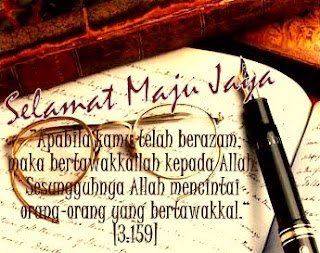 Selamat Maju Jaya
"Apabila kamu telah berazam,
maka bertawakkallah kepada Allah.
Sesungguhnya Allah mencintai
orang-orang yang bertawakkal."
[3:159]